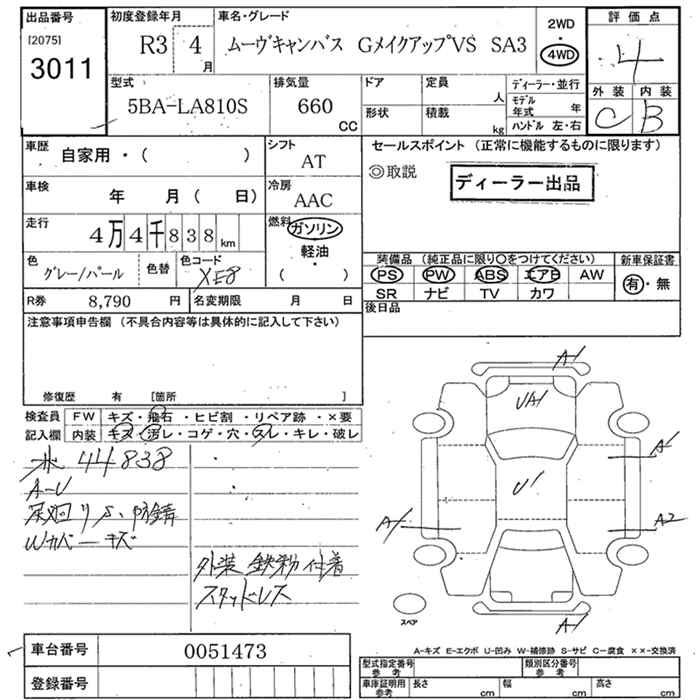 出品番号
[2075]
3011
初度登録年月
R3 4
月
車名・グレード
ムーヴキャンバス GメイクアップVS SA3
2WD
・
4WD
評価点
4
外装 内装
C B
型式
5BA-LA810S
排気量
660
CC
ドア
形状
定員
人
積載
kg
ディーラー・並行
モデル年式 年
ハンドル 左・右
車歴
自家用・( )
シフト
AT
車検
年 月( 日)
冷房
AAC
走行
4万4千838km
燃料
ガソリン
・
軽油
・
( )
色
グレー/パール
色替
色コード
XE8
R券 8,790 円
名変期限 月 日
セールスポイント (正常に機能するものに限ります)
◎取説
ディーラー出品
装備品 (純正品に限り○をつけてください)
PS PW ABS エアB AW
SR ナビ TV カワ
新車保証書
有・無
後日品
注意事項申告欄 (不具合内容等は具体的に記入して下さい)
修復歴 有 [箇所 ]
検査員記入欄
FW キズ・飛石・ヒビ割・リペア跡・×要
内装 キズ・汚レ・コゲ・穴・スレ・キレ・破レ
44838
A-U
下廻りS、防錆
Wカバーキズ
外装 鉄粉付着
スタッドレス
A1
UA1
A1
U1
A1
A2
A1
スペア
A-キズ E-エクボ U-凹み W-補修跡 S-サビ C-腐食 ××-交換済
車台番号 0051473
登録番号
型式指定番号
類別区分番号
車庫証明用参考 長さ cm 幅 cm 高さ cm